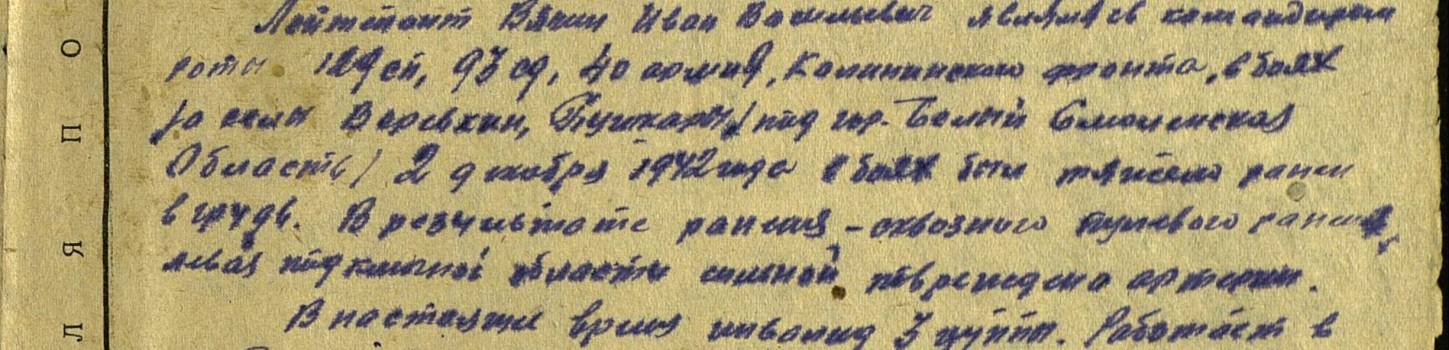 Лейтенант Вякин Иван Васильевич являлся командиром
роты 129 сп, 93 сд, 40 армия, Калининского фронта, в боях
за села Веревкин, Пушкари /под гор. Белый Смоленская
Область/ 2 декабря 1942 года в боях был тяжело ранен
в грудь. В результате ранения, - сквозного пулевого ранения,
левая подключной области сильной повреждена артерии.
В настоящее время инвалид 3 группы. Работает в
Л Я П О